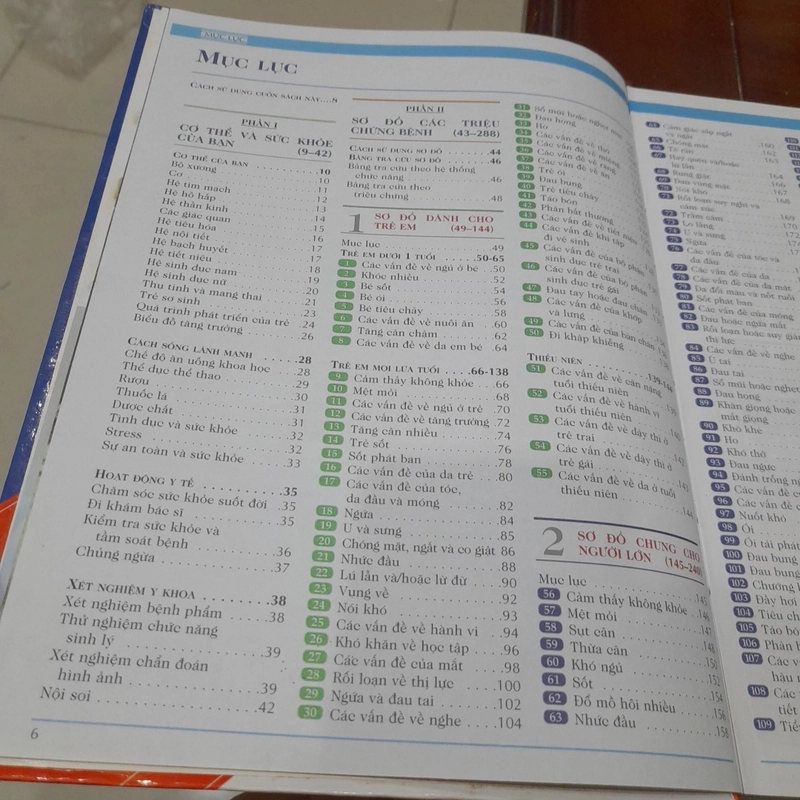 MỤC LỤC
MỤC LỤC
CÁCH SỬ DỤNG CUỐN SÁCH NÀY....8
PHẦN I
CƠ THỂ VÀ SỨC KHỎE
CỦA BẠN (9–42)
CƠ THỂ CỦA BẠN .10
Bộ xương .10
Cơ .10
Hệ tim mạch .11
Hệ hô hấp .12
Hệ thần kinh .13
Các giác quan .14
Hệ tiêu hóa .15
Hệ nội tiết .16
Hệ bạch huyết .17
Hệ tiết niệu .17
Hệ sinh dục nam .18
Hệ sinh dục nữ .19
Thụ tinh và mang thai .20
Trẻ sơ sinh .21
Quá trình phát triển của trẻ .24
Biểu đồ tăng trưởng .26
CÁCH SỐNG LÀNH MẠNH .28
Chế độ ăn uống khoa học .28
Thể dục thể thao .29
Rượu .30
Thuốc lá .31
Dược chất .31
Tình dục và sức khỏe .32
Stress .32
Sự an toàn và sức khỏe .33
HOẠT ĐỘNG Y TẾ .35
Chăm sóc sức khỏe suốt đời .35
Đi khám bác sĩ .35
Kiểm tra sức khỏe và
tầm soát bệnh .36
Chủng ngừa .37
XÉT NGHIỆM Y KHOA .38
Xét nghiệm bệnh phẩm .38
Thử nghiệm chức năng
sinh lý .39
Xét nghiệm chẩn đoán
hình ảnh .39
Nội soi .42
6
PHẦN II
SƠ ĐỒ CÁC TRIỆU
CHỨNG BỆNH (43–288)
CÁCH SỬ DỤNG SƠ ĐỒ .44
BẢNG TRA CỨU SƠ ĐỒ .46
Bảng tra cứu theo hệ thống
chức năng .46
Bảng tra cứu theo
triệu chứng .48
1 SƠ ĐỒ DÀNH CHO
TRẺ EM (49–144)
Mục lục .49
TRẺ EM DƯỚI 1 TUỔI .50-65
1 Các vấn đề về ngủ ở bé .50
2 Khóc nhiều .52
3 Bé sốt .54
4 Bé ói .56
5 Bé tiêu chảy .58
6 Các vấn đề về nuôi ăn .60
7 Tăng cân chậm .62
8 Các vấn đề về da em bé .64
TRẺ EM MỌI LỨA TUỔI .66-138
9 Cảm thấy không khỏe .66
10 Mệt mỏi .68
11 Các vấn đề về ngủ ở trẻ .70
12 Các vấn đề về tăng trưởng .72
13 Tăng cân nhiều .74
14 Trẻ sốt .76
15 Sốt phát ban .78
16 Các vấn đề của da trẻ .80
17 Các vấn đề của tóc,
da đầu và móng .82
18 Ngứa .84
19 U và sưng .85
20 Chóng mặt, ngất và co giật 86
21 Nhức đầu .88
22 Lú lẫn và/hoặc lừ đừ .90
23 Vụng về .92
24 Nói khó .93
25 Các vấn đề về hành vi .94
26 Khó khăn về học tập .96
27 Các vấn đề của mắt .98
28 Rối loạn về thị lực .100
29 Ngứa và đau tai .102
30 Các vấn đề về nghe .104
31 Sổ mũi hoặc nghẹt mũi
32 Đau họng
33 Ho
38 Trẻ ói
39 Đau bụng
40 Trẻ tiêu chảy
41 Táo bón
42 Phân bất thường
43 Các vấn đề về tiết niệu
44 Các vấn đề khi tập
đi vệ sinh
45 Các vấn đề của bộ phận
sinh dục trẻ trai
46 Các vấn đề của bộ phận
sinh dục trẻ gái
47 Đau tay hoặc đau chân
48 Các vấn đề của khớp
và lưng
49 Các vấn đề của bàn chân
50 Đi khập khiễng
THIẾU NIÊN .139-144
51 Các vấn đề về cân nặng
tuổi thiếu niên
52 Các vấn đề về hành vi
tuổi thiếu niên
53 Các vấn đề về dậy thì ở
trẻ trai
54 Các vấn đề về dậy thì ở
trẻ gái
55 Các vấn đề về da ở tuổi
thiếu niên .144
2 SƠ ĐỒ CHUNG CHO
NGƯỜI LỚN (145–240)
Mục lục .145
56 Cảm thấy không khỏe .146
57 Mệt mỏi .147
58 Sụt cân .148
59 Thừa cân .150
60 Khó ngủ .152
61 Sốt .154
62 Đổ mồ hôi nhiều .156
63 Nhức đầu .158
64 Cảm giác sắp ngất
và ngất .160
65 Chóng mặt
66 Tê rần
67 Hay quên và/hoặc
lú lẫn
68 Run giật .164
69 Đau vùng mặt .166
70 Nói khó .167
71 Rối loạn suy nghĩ và
cảm xúc .168
72 Trầm cảm .169
73 Lo lắng
74 U và sưng
75 Ngứa
76 Các vấn đề của tóc và
da đầu
77 Các vấn đề của da
79 Da đổi màu và nốt ruồi
80 Sốt phát ban
81 Các vấn đề của móng
82 Đau hoặc ngứa mắt
83 Rối loạn hoặc suy giảm
thị lực
84 Các vấn đề về nghe
85 Ù tai
86 Đau tai
87 Sổ mũi hoặc nghẹt
88 Đau họng
89 Khàn giọng hoặc
mất giọng
90 Khò khè
91 Ho
92 Khó thở
93 Đau ngực
94 Đánh trống ng
95 Các vấn đề về
96 Các vấn đề c
97 Nuốt khó
98 Ói
99 Ói tái phát
100 Đau bụng
101 Đau bụng
102 Chướng b
103 Đầy hơi
104 Tiêu ch
105 Táo bó
106 Phân b
107 Các v
hậu m
108 Các
tiết
109 Tiể